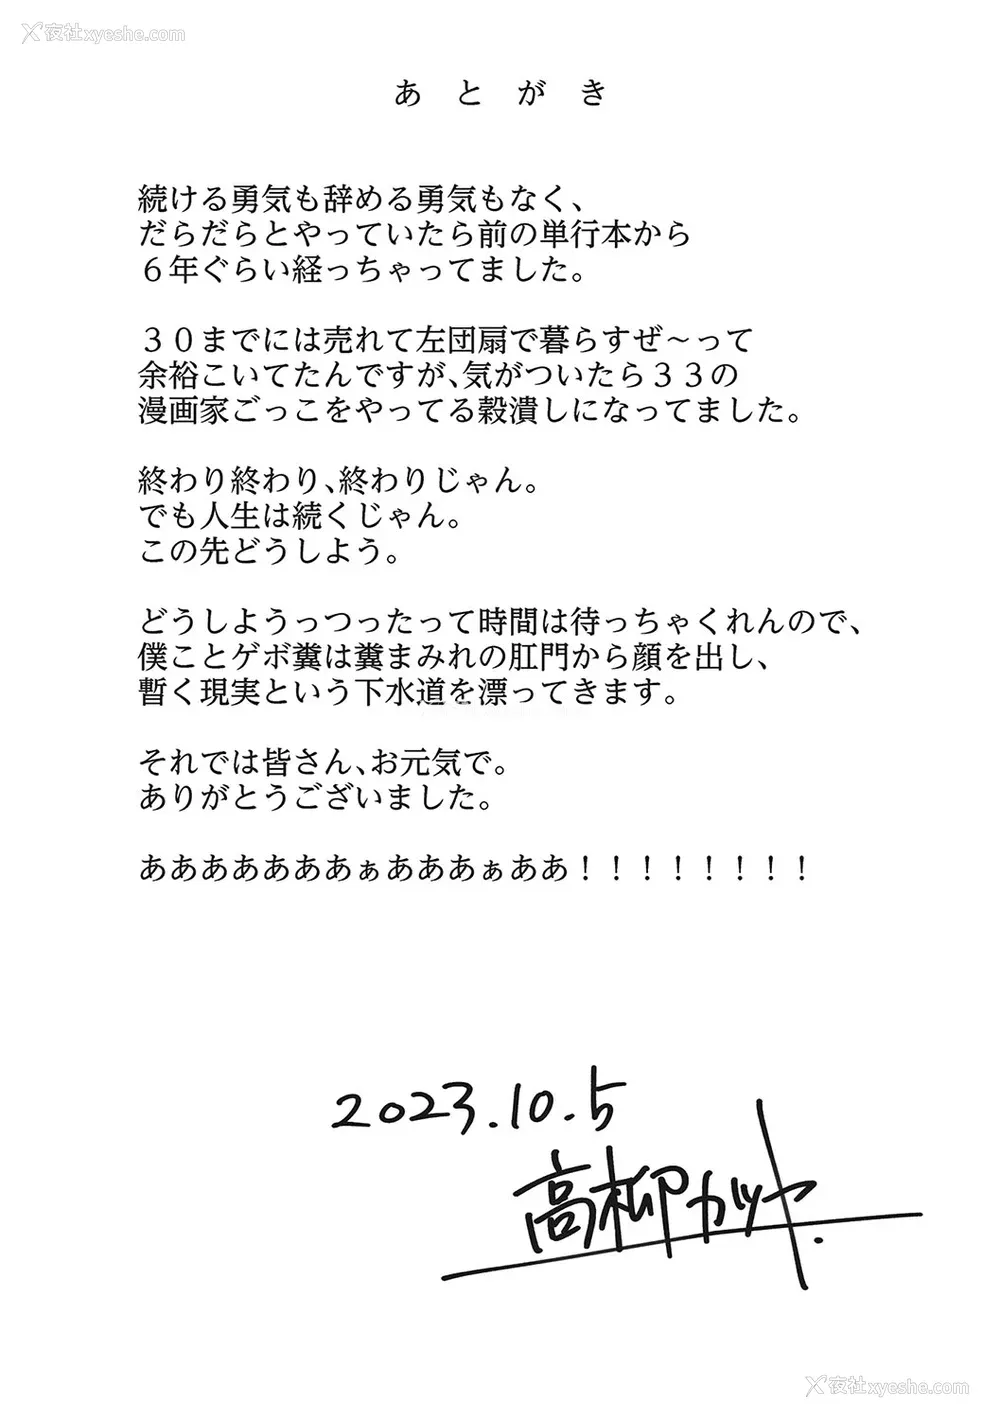 夜社xyeshe.com
あとがき
続ける勇気も辞める勇気もなく、
だらだらとやっていたら前の単行本から
６年ぐらい経っちゃってました。
３０までには売れて左団扇で暮らすぜ～って
余裕こいてたんですが、気がついたら３３の
漫画家ごっこをやってる穀潰しになってました。
終わり終わり、終わりじゃん。
でも人生は続くじゃん。
この先どうしよう。
どうしようっつったって時間は待っちゃくれんので、
僕ことゲボ糞は糞まみれの肛門から顔を出し、
暫く現実という下水道を漂ってきます。
それでは皆さん、お元気で。
ありがとうございました。
あああああああぁあああぁああ！！！！！！！！
2023.10.5
高柳カツヤ.
夜社xyeshe.com